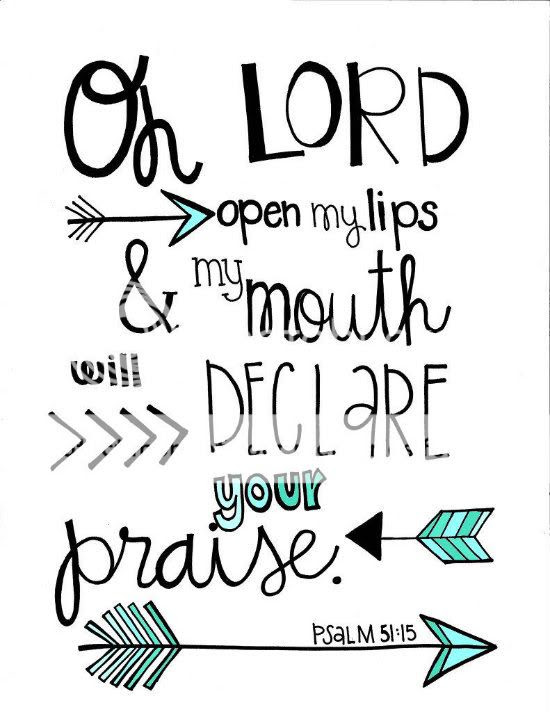 Oh LORD
open my lips
& my mouth
will DECLaRE
your
praise.
PSaLM 51:15